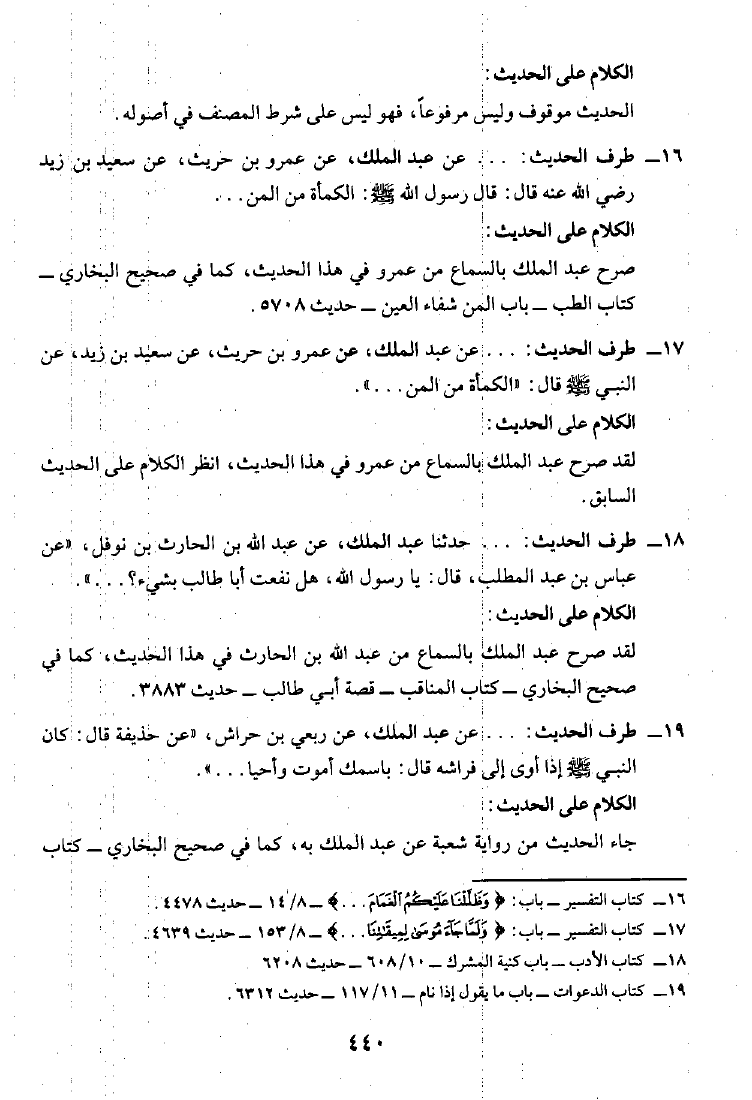 الكلام على الحديث :
الحديث موقوف وليس مرفوعاً، فهو ليس على شرط المصنف في أصوله .
١٦ـ طرف الحديث : . . . عن عبد الملك، عن عمرو بن حريث، عن سعيد بن زيد
رضي الله عنه قال : قال رسول الله ﷺ : الكمأة من المن . . .
الكلام على الحديث :
صرح عبد الملك بالسماع من عمرو في هذا الحديث، كما في صحيح البخاري ـ
كتاب الطب ـ باب المن شفاء العين ـ حديث ٥٧٠٨ .
١٧ـ طرف الحديث : . . . عن عبد الملك، عن عمرو بن حريث، عن سعيد بن زيد، عن
النبي ﷺ قال : «الكمأة من المن . . .» .
الكلام على الحديث :
لقد صرح عبد الملك بالسماع من عمرو في هذا الحديث، انظر الكلام على الحديث
السابق .
١٨ـ طرف الحديث : . . . حدثنا عبد الملك، عن عبد الله بن الحارث بن نوفل، «عن
عباس بن عبد المطلب، قال : يا رسول الله، هل نفعت أبا طالب بشيء؟ . . .» .
الكلام على الحديث :
لقد صرح عبد الملك بالسماع من عبد الله بن الحارث في هذا الحديث، كما في
صحيح البخاري ـ كتاب المناقب ـ قصة أبي طالب ـ حديث ٣٨٨٣ .
١٩ـ طرف الحديث : . . . عن عبد الملك، عن ربعي بن حراش، «عن حذيفة قال : كان
النبي ﷺ إذا أوى إلى فراشه قال : باسمك أموت وأحيا . . .» .
الكلام على الحديث :
جاء الحديث من رواية شعبة عن عبد الملك به، كما في صحيح البخاري ـ كتاب
١٦ـ كتاب التفسير ـ باب : ﴿ وَظَلَّلْنَا عَلَيْكُمُ الْغَمَامَ . . . ﴾ ـ ١٤/٨ ـ حديث ٤٤٧٨ .
١٧ـ كتاب التفسير ـ باب : ﴿ وَلَمَّا جَاءَ مُوسَىٰ لِمِيقَاتِنَا . . . ﴾ ـ ١٥٣/٨ ـ حديث ٤٦٣٩ .
١٨ـ كتاب الأدب ـ باب كنية المشرك ـ ٦٠٨/١٠ ـ حديث ٦٢٠٨
١٩ـ كتاب الدعوات ـ باب ما يقول إذا نام ـ ١١٧/١١ ـ حديث ٦٣١٢ .
٤٤٠